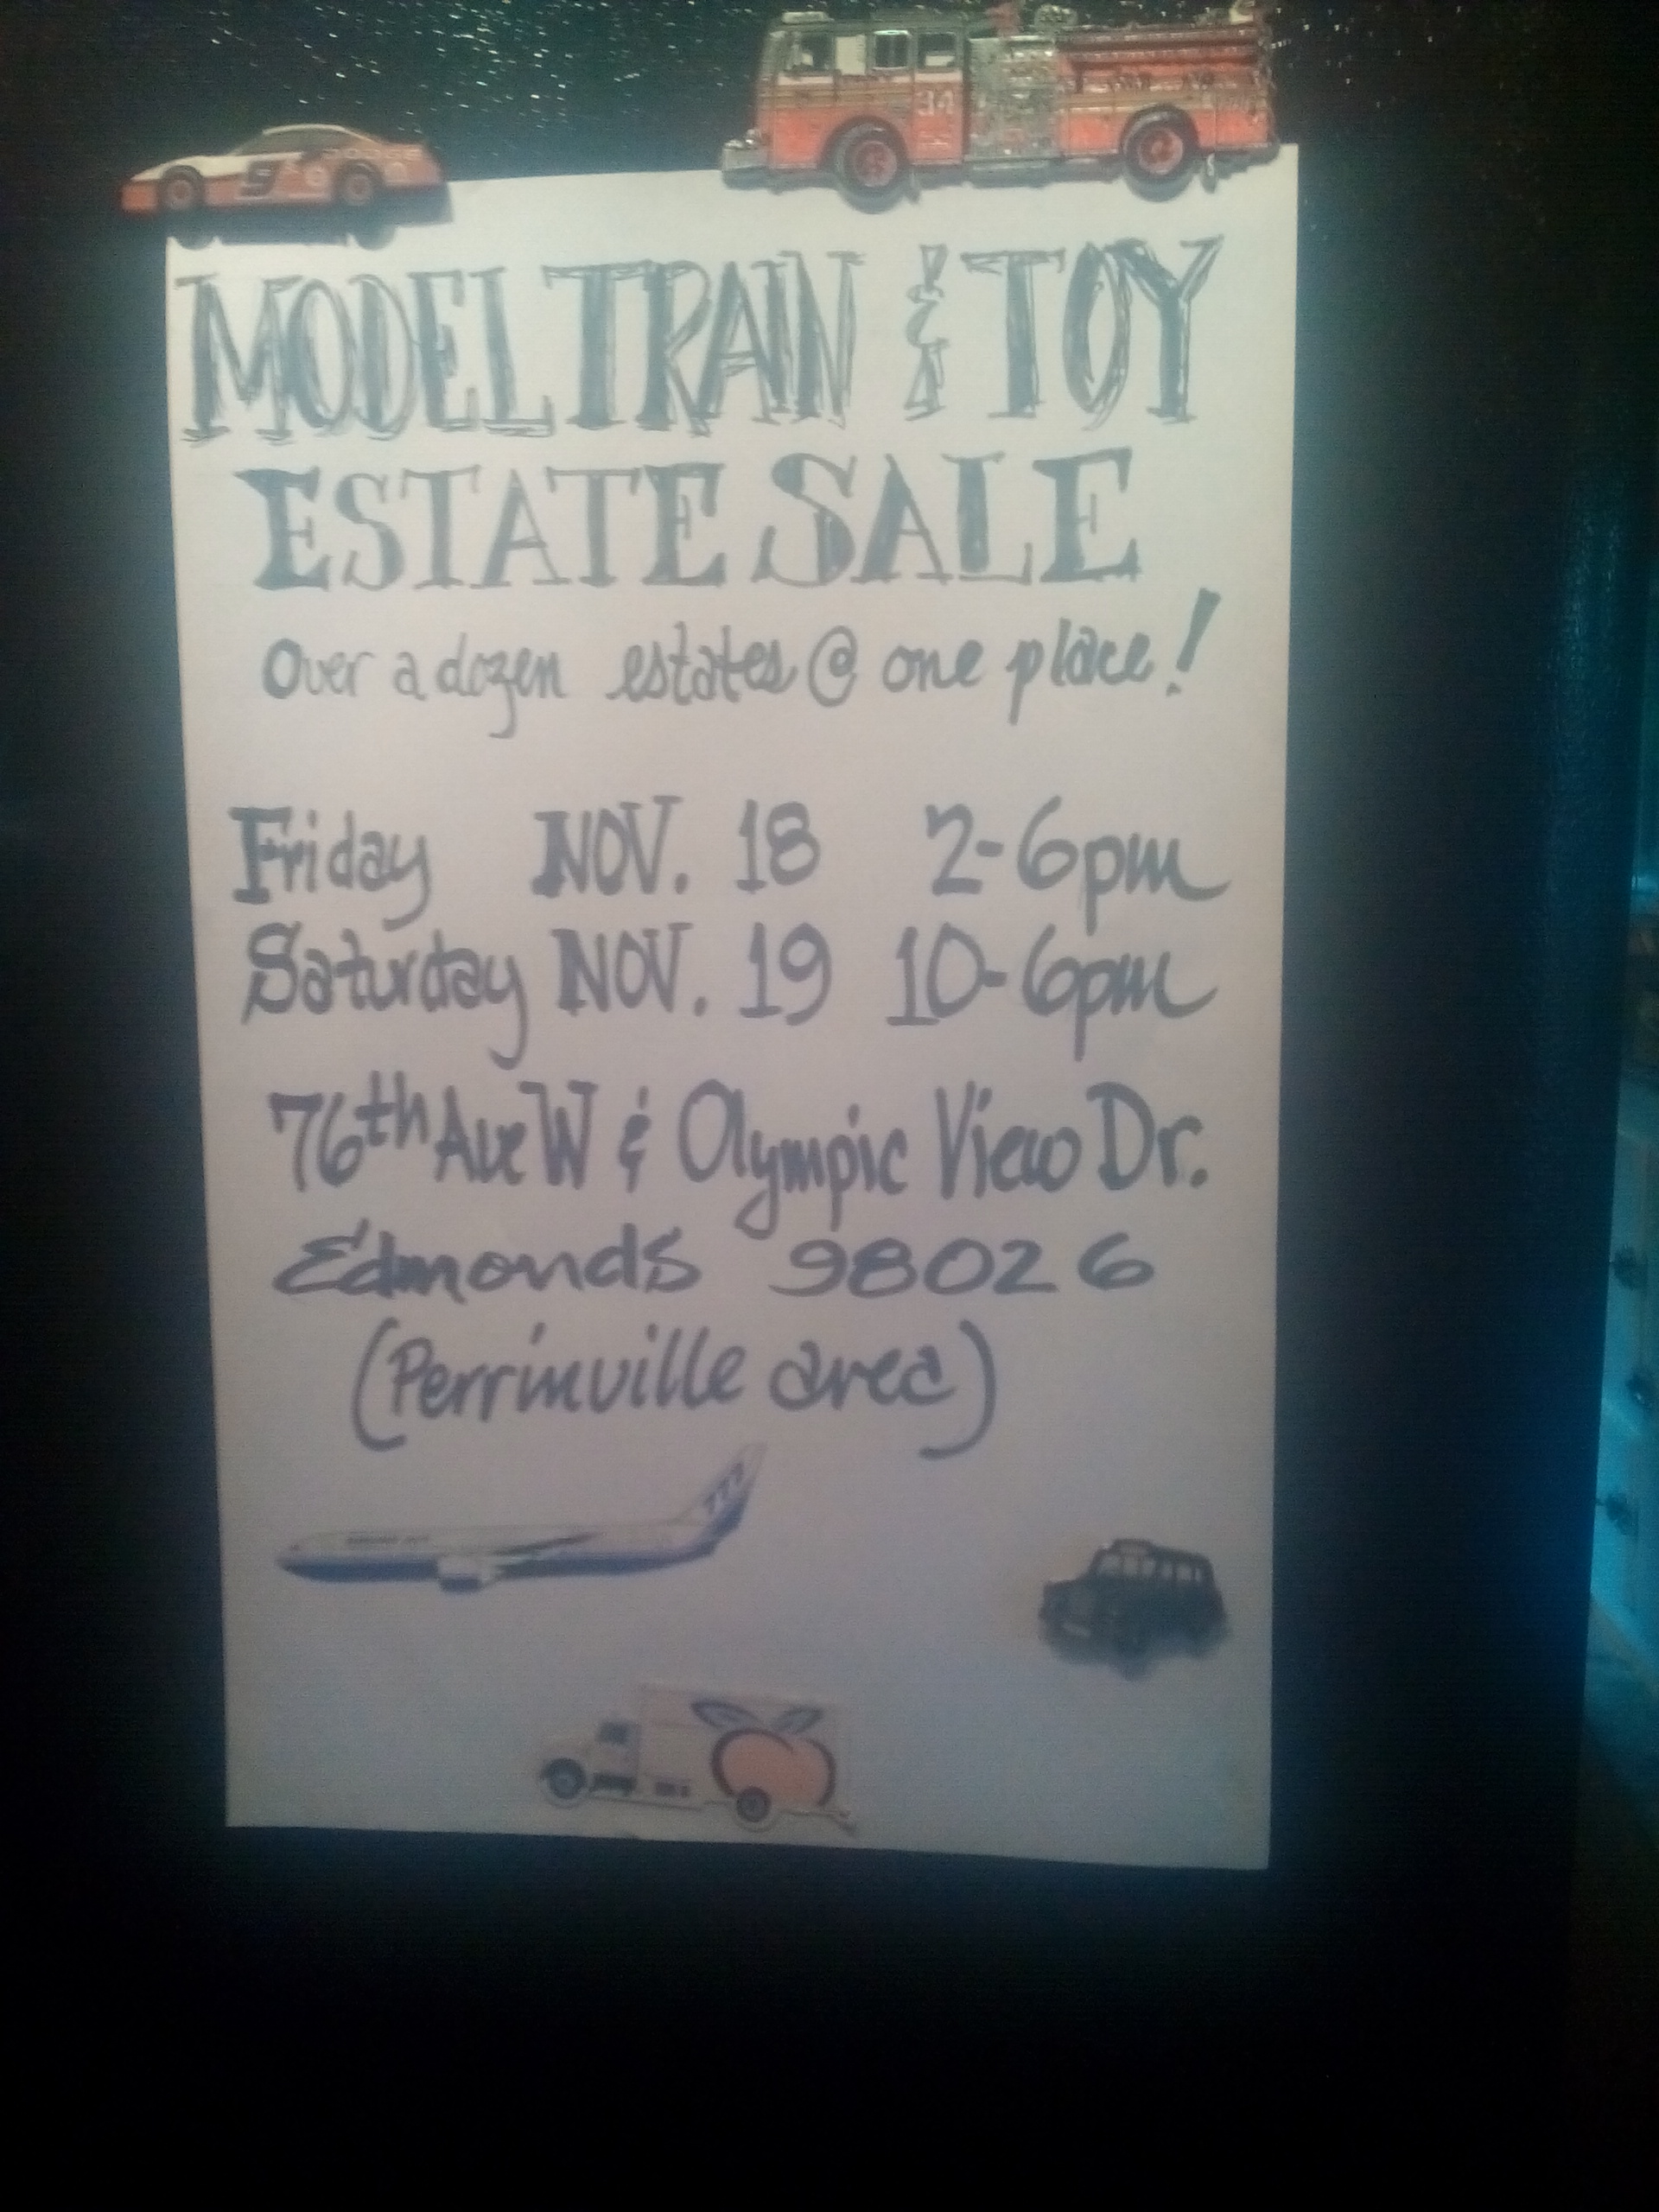 9
34
MODEL TRAIN & TOY
ESTATE SALE
Over a dozen estates @ one place!
Friday NOV. 18 2-6pm
Saturday NOV. 19 10-6pm
76th Ave W & Olympic View Dr.
Edmonds 98026
(Perrinville area)
777